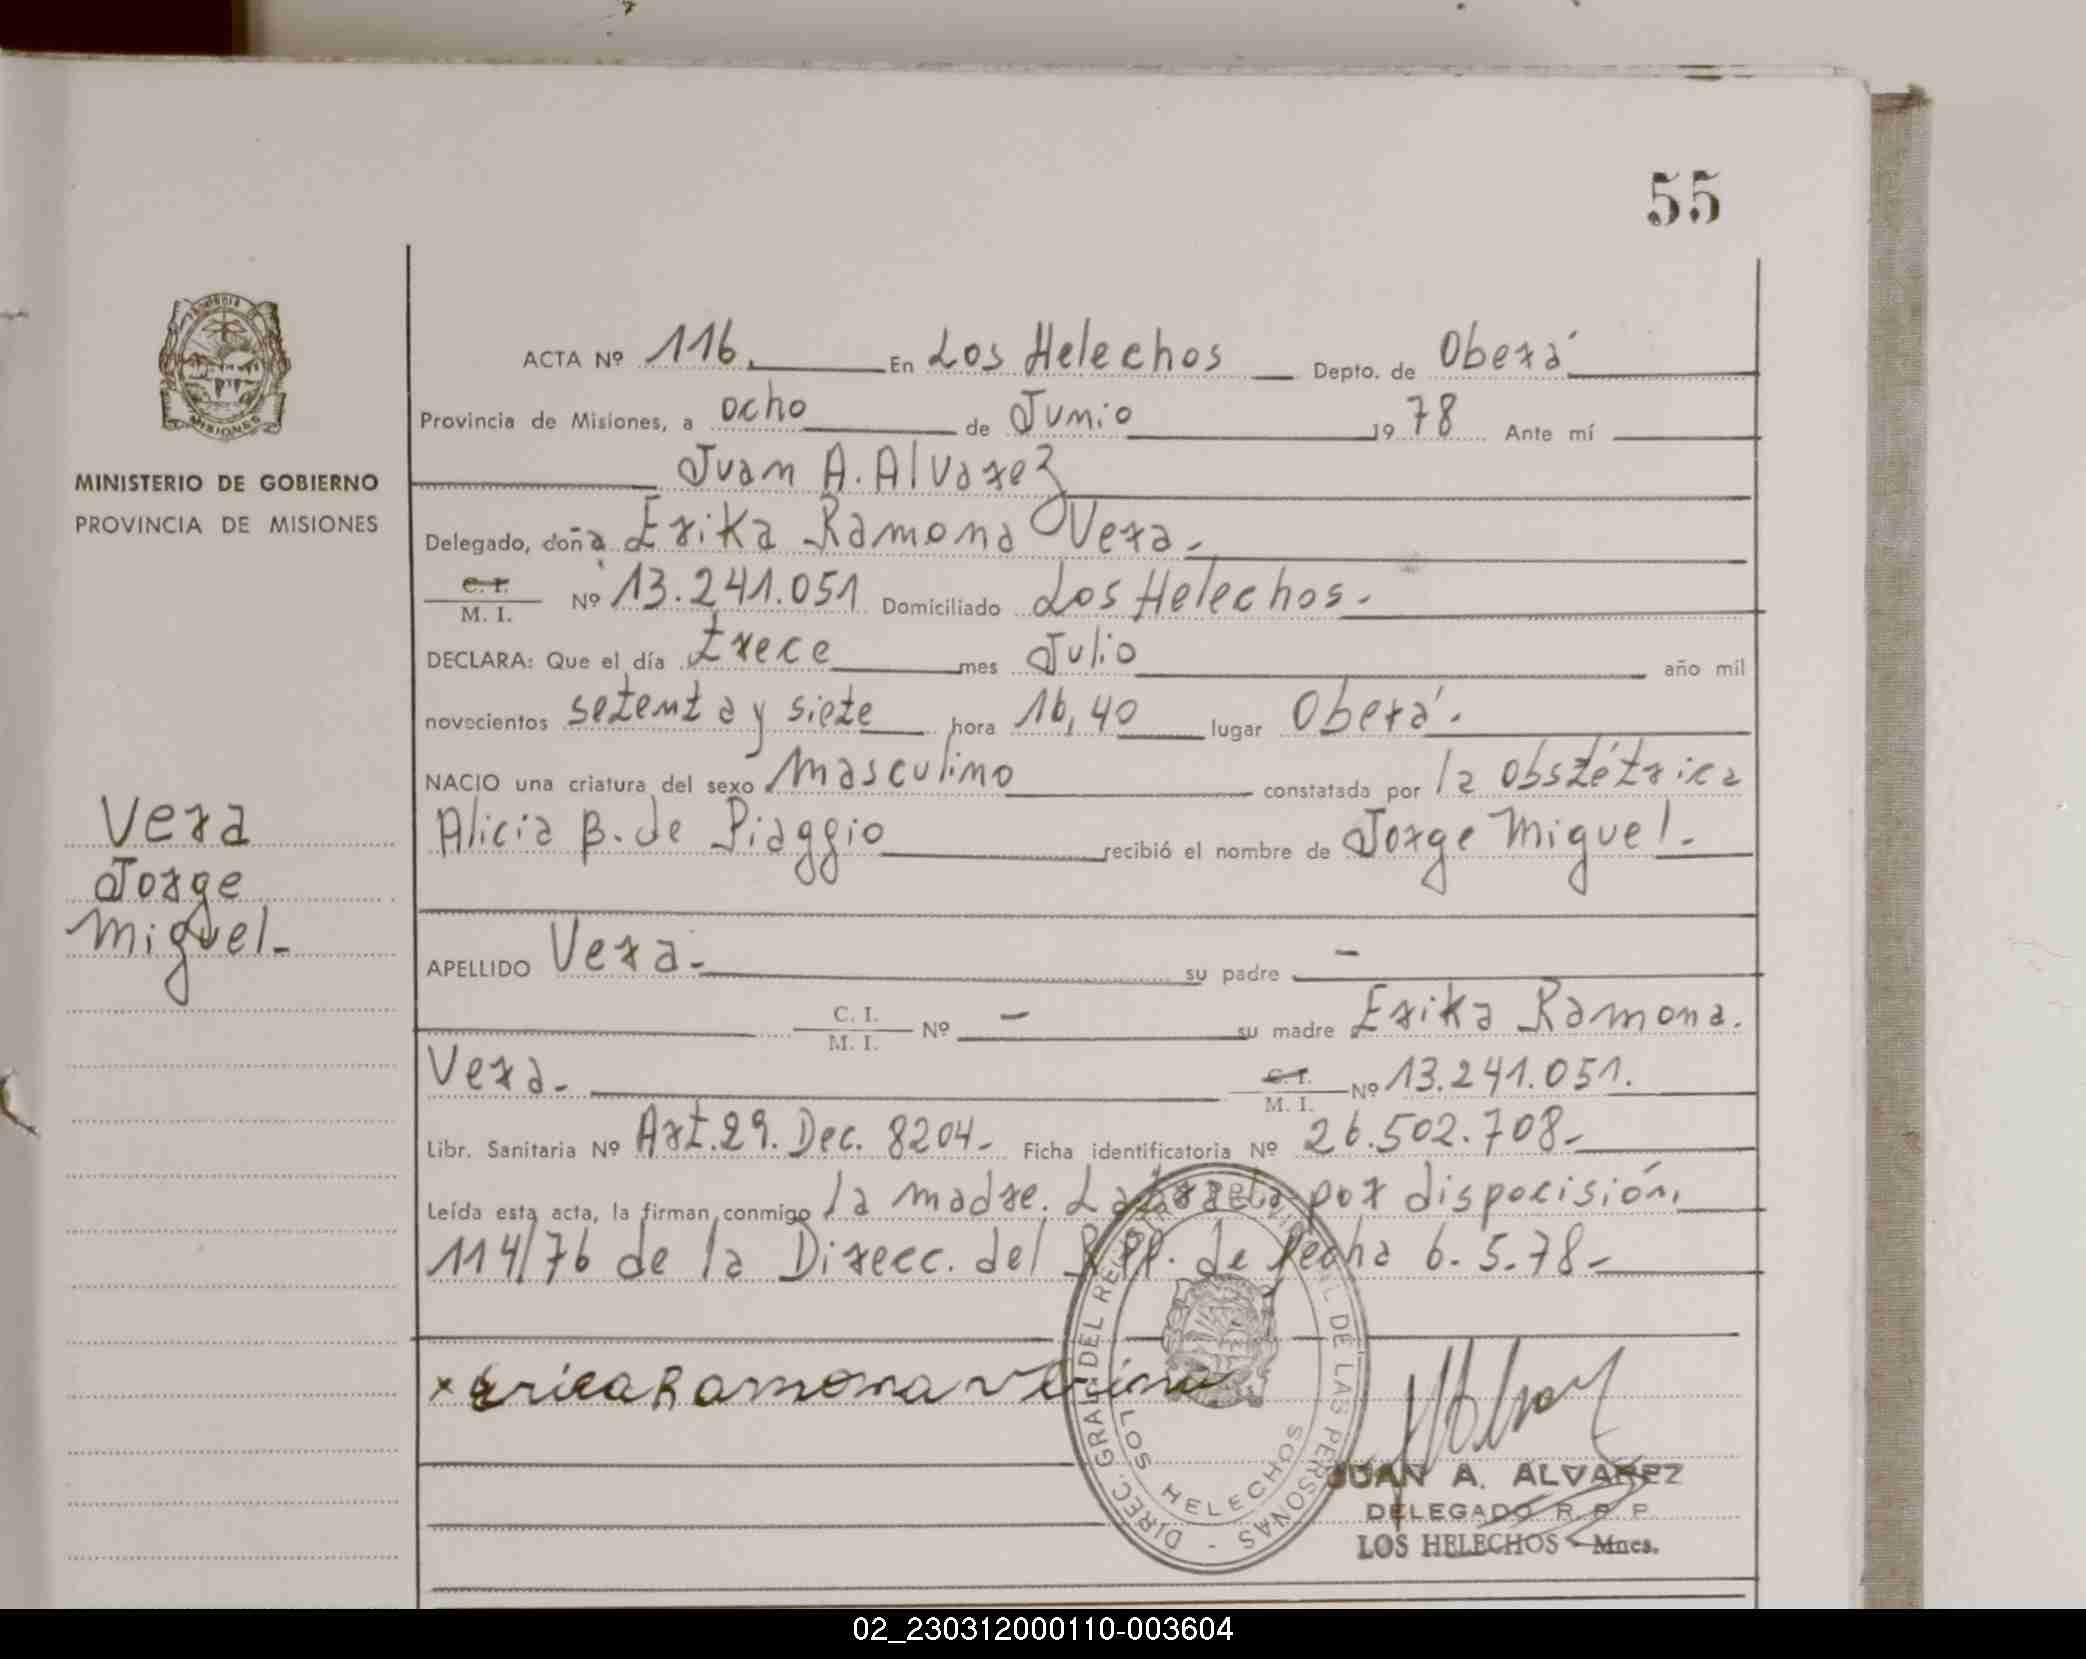 55
ACTA Nº 116. En Los Helechos Depto. de Oberá
Provincia de Misiones, a ocho de Junio 1978 Ante mí
Juan A. Alvarez
MINISTERIO DE GOBIERNO
PROVINCIA DE MISIONES
Delegado, doña Erika Ramona Vera.-
C. I. / M. I. Nº 13.241.051 Domiciliado Los Helechos.-
DECLARA: Que el día trece mes Julio año mil
novecientos setenta y siete hora 16,40 lugar Oberá.
NACIO una criatura del sexo masculino constatada por la obstétrica
Alicia B. de Piaggio recibió el nombre de Jorge Miguel.-
Vera
Jorge
Miguel-
APELLIDO Vera.- su padre -
C. I. / M. I. Nº - su madre Erika Ramona.
Vera.- C. I. / M. I. Nº 13.241.051.
Libr. Sanitaria Nº Art.29. Dec. 8204- Ficha identificatoria Nº 26.502.708-
Leída esta acta, la firman conmigo la madre. La por disposición,
114/76 de la Direcc. del R.PP. de fecha 6.5.78-
x erica Ramona
DIREC. GRAL. DEL REGISTRO PROVINCIAL DE LAS PERSONAS -
LOS HELECHOS
MISIONES
JUAN A. ALVAREZ
DELEGADO R. P. P.
LOS HELECHOS - Mnes.
02_230312000110-003604